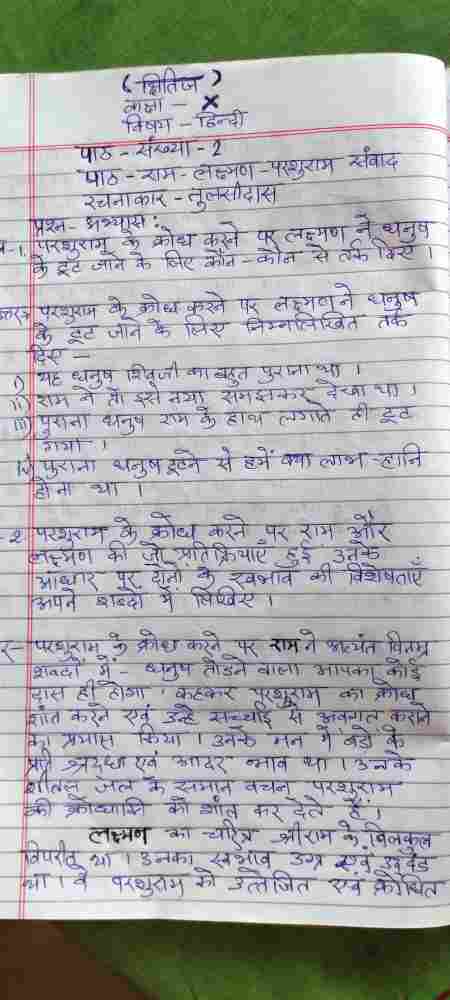 (क्षितिज)
कक्षा - X
विषय - हिन्दी
पाठ - संख्या - 2
पाठ - राम - लक्ष्मण - परशुराम संवाद
रचनाकार - तुलसीदास
प्रश्न - अभ्यास :
परशुराम के क्रोध करने पर लक्ष्मण ने धनुष
के टूट जाने के लिए कौन - कौन से तर्क दिए ।
परशुराम के क्रोध करने पर लक्ष्मण ने धनुष
के टूट जाने के लिए निम्नलिखित तर्क
दिए —
i) यह धनुष शिवजी का बहुत पुराना था ।
ii) राम ने तो इसे नया समझकर देखा था ।
iii) पुराना धनुष राम के हाथ लगाते ही टूट
गया ।
iv) पुराना धनुष टूटने से हमें क्या लाभ - हानि
होना था ।
2. परशुराम के क्रोध करने पर राम और
लक्ष्मण की जो प्रतिक्रियाएँ हुई उनके
आधार पर दोनों के स्वभाव की विशेषताएँ
अपने शब्दों में लिखिए ।
परशुराम के क्रोध करने पर राम ने अत्यंत विनम्र
शब्दों में - धनुष तोडने वाला आपका कोई
दास ही होगा । कहकर परशुराम का क्रोध
शांत करने एवं उन्हे सच्चाई से अवगत कराने
का प्रयास किया । उनके मन में बडो के
प्रति श्रद्धा एवं आदर भाव था । उनके
शीतल जल के समान वचन परशुराम
की क्रोधाग्नि को शांत कर देते हैं ।
लक्ष्मण का चरित्र श्रीराम के बिलकुल
विपरीत था । उनका स्वभाव उग्र एवं उद्दंड
था । वे परशुराम को उत्तेजित एवं क्रोधित